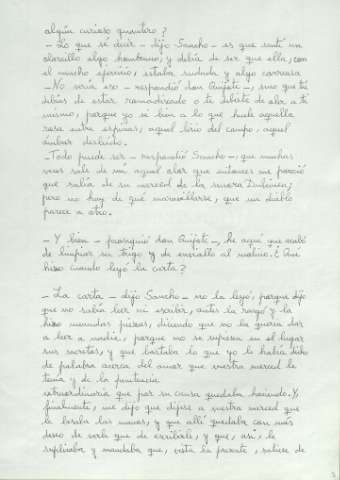 algún curioso guantero?
- Lo que sé decir - dijo Sancho - es que sentí un
olorcillo algo hombruno; y debía de ser que ella, con
el mucho ejercicio, estaba sudada y algo correosa
- No sería eso - respondió don Quijote -, sino que tú
debías de estar romadizado o te debiste de oler a ti
mismo, porque yo sé bien a lo que huele aquella
rosa entre espinas, aquel lirio del campo, aquel
ámbar desleído.
- Todo puede ser - respondió Sancho -, que muchas
veces sale de mí aquel olor que entonces me pareció
que salía de su merced de la señora Dulcinea;
pero no hay de qué maravillarse, que un diablo
parece a otro.
- Y bien - prosiguió don Quijote -, he aquí que acabó
de limpiar su trigo y de enviallo al molino. ¿ Qué
hizo cuando leyó la carta?
- La carta - dijo Sancho - no la leyó, porque dijo
que no sabía leer ni escribir, antes la rasgó y la
hizo menudas piezas, diciendo que no la quería dar
a leer a nadie, porque no se supiesen en el lugar
sus secretos, y que bastaba lo que yo le había dicho
de palabra acerca del amor que vuestra merced le
tenía y de la penitencia
extraordinaria que por su causa quedaba haciendo. Y,
finalmente, me dijo que dijese a vuestra merced que
le besaba las manos, y que allí quedaba con más
deseo de verle que de escribirle, y que, así, le
suplicaba y mandaba que, vista la presente, saliese de